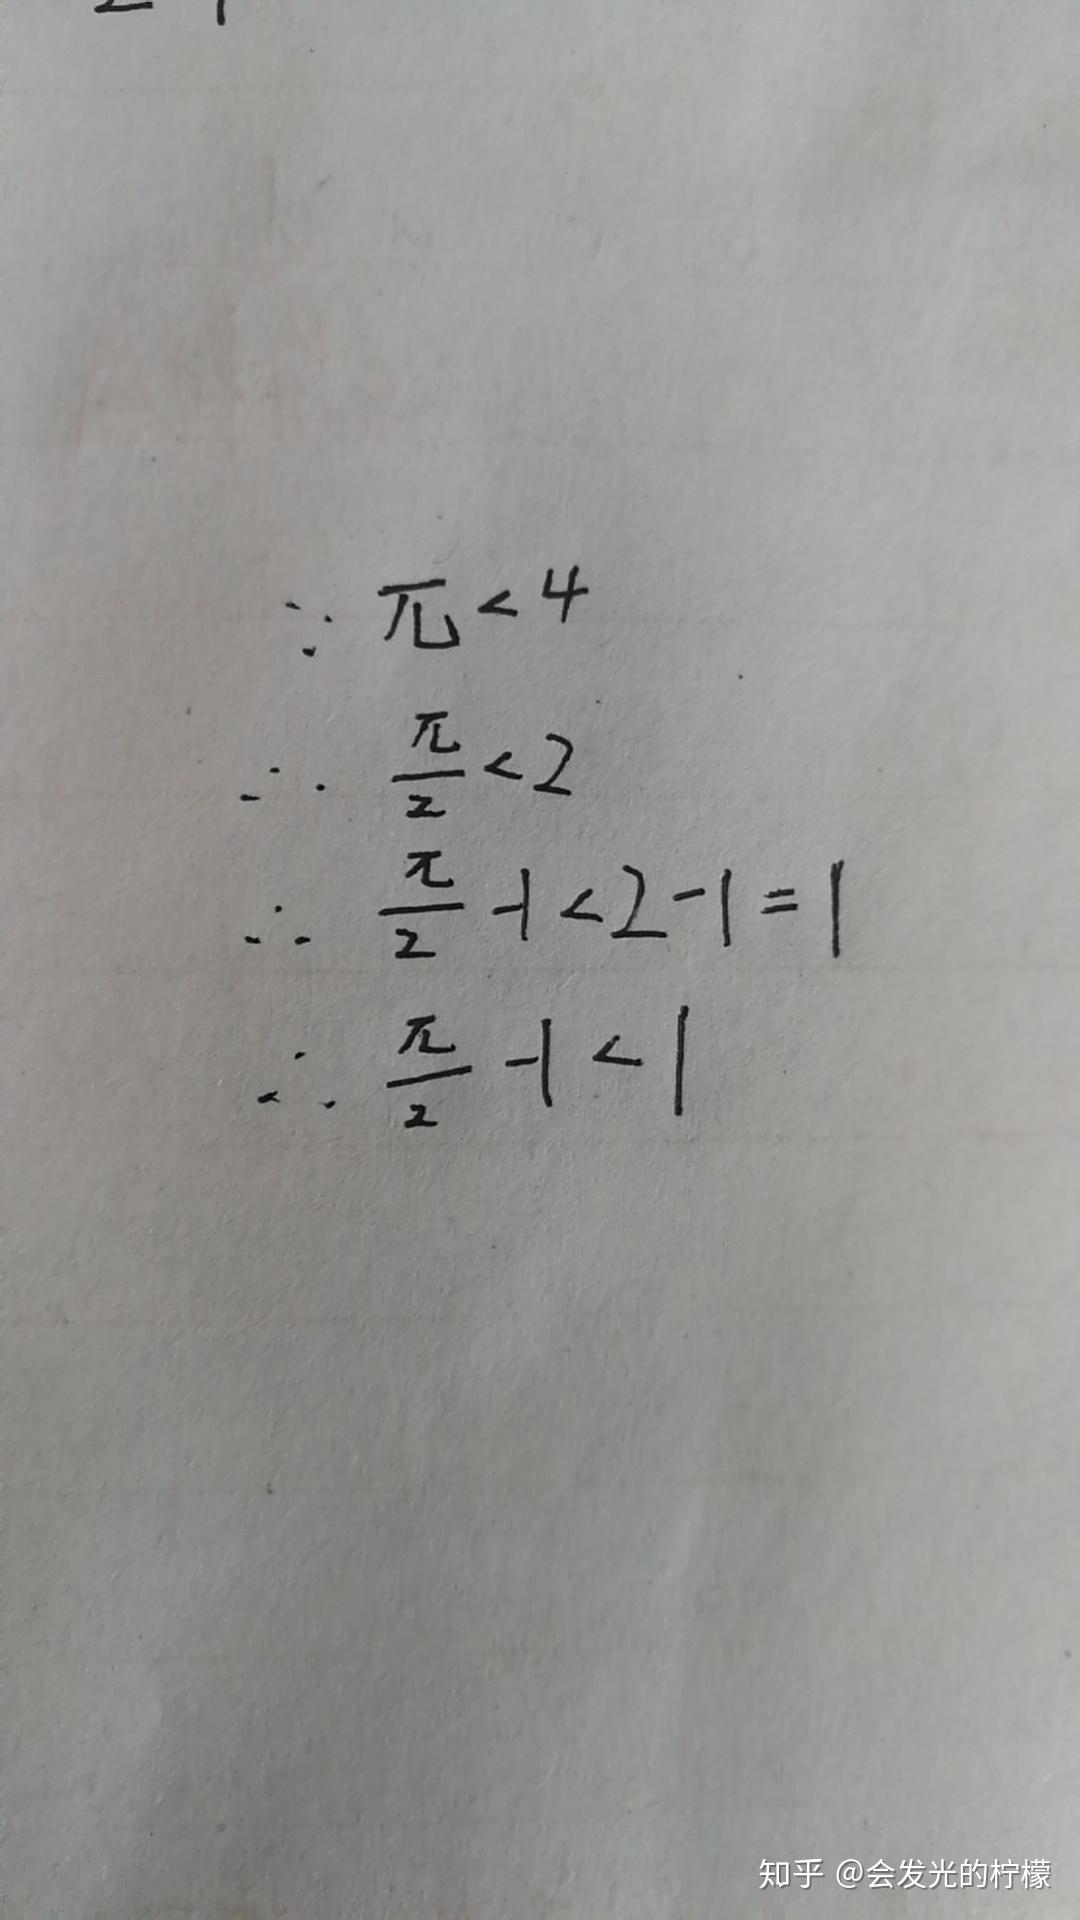 ∵ π < 4
∴ π/2 < 2
∴ π/2 - 1 < 2 - 1 = 1
∴ π/2 - 1 < 1
知乎 @会发光的柠檬